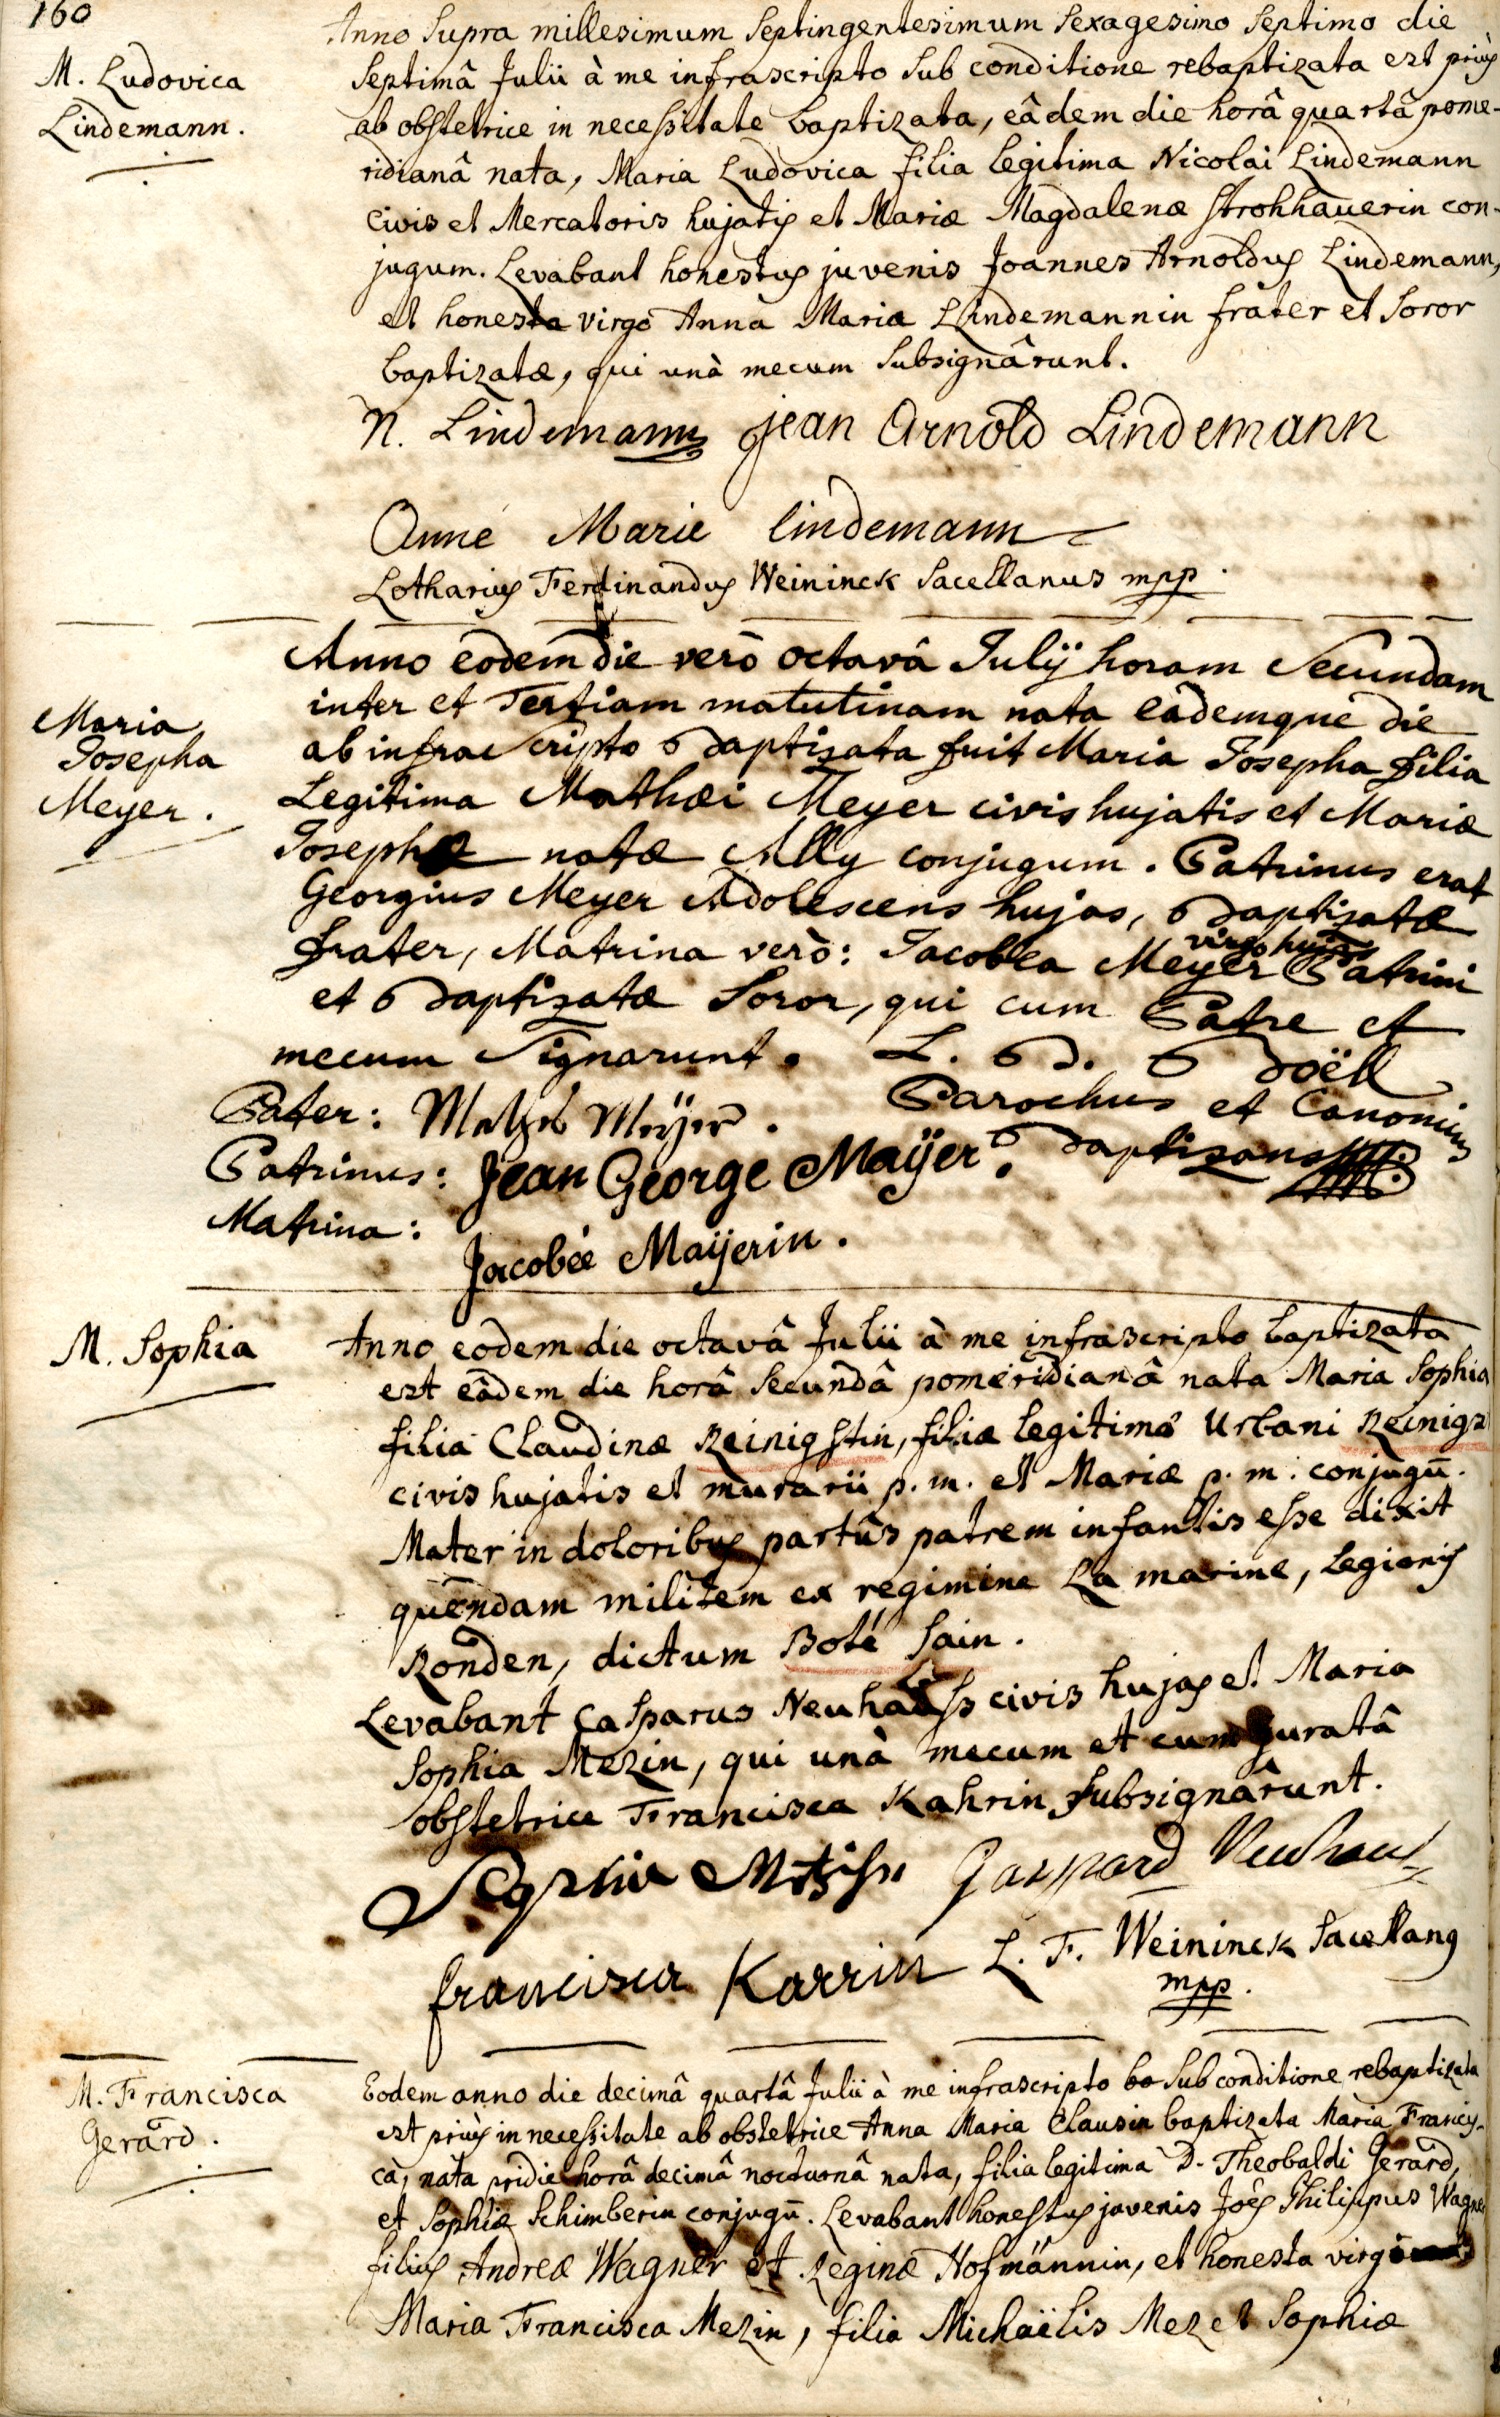 160
Anno supra millesimum septingentesimum sexagesimo septimo die
M. Ludovica
Lindemann.
septimâ Julii à me infrascripto sub conditione rebaptizata est priùs
ab obstetrice in necessitate baptizata, eâdem die horâ quartâ pome-
ridianâ nata, Maria Ludovica filia legitima Nicolai Lindemann
civis et Mercatoris hujatis et Mariæ Magdalenæ Strohhauerin con-
jugum. Levabant honestus juvenis Joannes Arnoldus Lindemann,
et honesta virgo Anna Maria Lindemannin frater et soror
baptizatæ, qui unà mecum subsignârunt.
N. Lindemann jean Arnold Lindemann
Anne Marie lindemann
Lotharius Ferdinandus Weininck Sacellanus mpp.
Anno eodem die verò octavâ Julij horam secundam
Maria
Josepha
Meyer.
inter et Tertiam matutinam nata eâdemque die
ab infrascripto baptisata fuit Maria Josepha filia
Legitima Mathæi Meyer civis hujatis et Mariæ
Josephæ natæ Ally conjugum. Patrinus erat
Georgius Meyer Adolescens hujas, baptisatæ
frater, Matrina verò: Jacobea Meyer virgo hujas Patrini
et baptisatæ soror, qui cum Patre et
mecum signarunt. L. B. Boëll
Parochus et Canonicus
baptizans
Pater: Mathes Meÿer.
Patrinus: Jean George Maÿer.
Matrina: Jacobée Maijerin.
M. Sophia
Anno eodem die octavâ Julii à me infrascripto baptizata
est eâdem die horâ secundâ pomeridianâ nata Maria Sophia
filia Claudinæ Reinigstin, filiæ legitimæ Urbani Reinigs
civis hujatis et murarii p. m. et Mariæ p. m. conjugū.
Mater in doloribus partûs patrem infantis esse dixit
quendam militem ex regimine La marine, Legionis
Ronden, dictum Boté Sain.
Levabant Casparus Neuhauss civis hujas et Maria
Sophia Mezin, qui unà mecum et cum juratâ
obstetrice Francisca Kahrin subsignârunt.
Sophia Gaspard Neuhaus
francisca Karrin L. F. Weininck Sacellanus
mpp.
M. Francisca
Gerard.
Eodem anno die decimâ quartâ Julii à me infrascripto ba sub conditione rebaptizata
est priùs in necessitate ab obstetrice Anna Maria Clausin baptizata Maria Francis-
ca, nata pridie horâ decimâ nocturnâ nata, filia legitima D. Theobaldi Gerard,
et Sophiæ Schimberin conjugū. Levabant honestus juvenis Joēs Philippus Wagner
filius Andreæ Wagner et Reginæ Hofmännin, et honesta virgo
Maria Francisca Mezin, filia Michaëlis Mez et Sophiæ